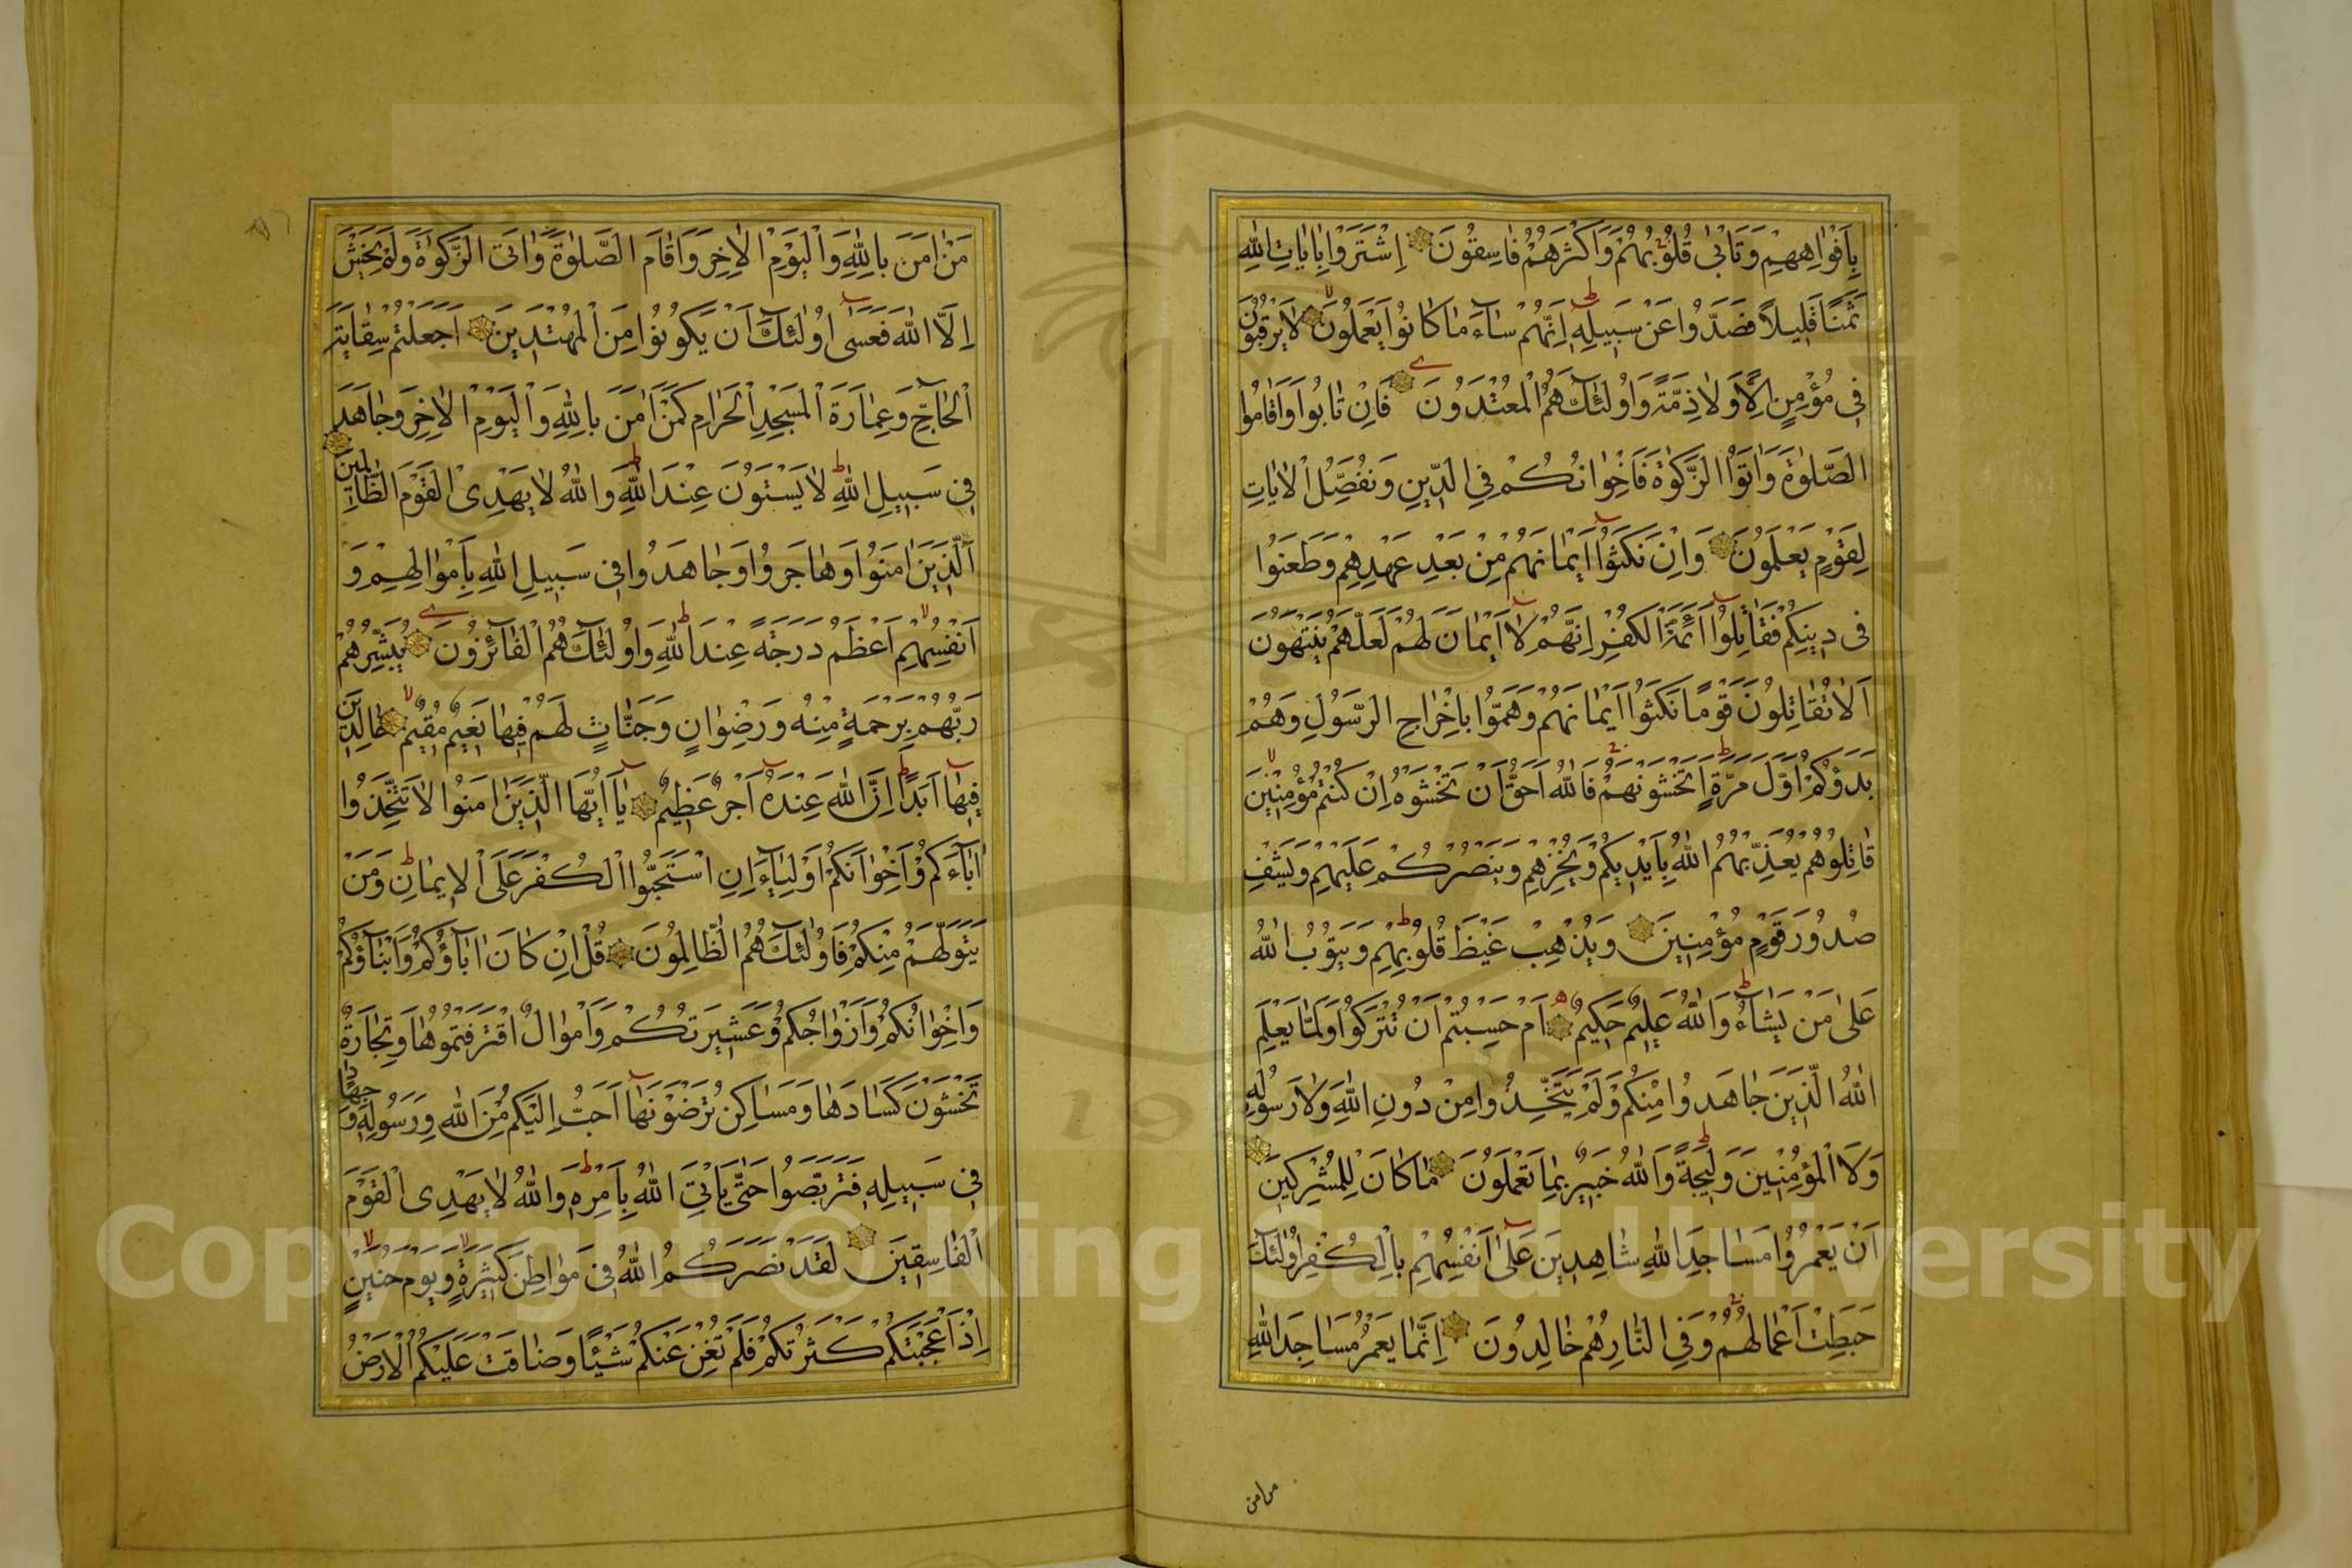 بِاَفْوَاهِهِمْ وَتَاْبٰى قُلُوبُهُمْ وَاَكْثَرُهُمْ فَاسِقُونَ اِشْتَرَوْا بِاٰيَاتِ اللّٰهِ
ثَمَنًا قَلِيلًا فَصَدُّوا عَنْ سَبِيلِهٖ اِنَّهُمْ سَآءَ مَا كَانُوا يَعْمَلُونَ لَا يَرْقُبُونَ
فِى مُؤْمِنٍ اِلًّا وَلَا ذِمَّةً وَاُولٰٓئِكَ هُمُ الْمُعْتَدُونَ فَاِنْ تَابُوا وَاَقَامُوا
الصَّلٰوةَ وَاٰتَوُا الزَّكٰوةَ فَاِخْوَانُكُمْ فِى الدِّينِ وَنُفَصِّلُ الْاٰيَاتِ
لِقَوْمٍ يَعْلَمُونَ وَاِنْ نَكَثُوٓا اَيْمَانَهُمْ مِنْ بَعْدِ عَهْدِهِمْ وَطَعَنُوا
فِى دِينِكُمْ فَقَاتِلُوٓا اَئِمَّةَ الْكُفْرِ اِنَّهُمْ لَٓا اَيْمَانَ لَهُمْ لَعَلَّهُمْ يَنْتَهُونَ
اَلَا تُقَاتِلُونَ قَوْمًا نَكَثُوٓا اَيْمَانَهُمْ وَهَمُّوا بِاِخْرَاجِ الرَّسُولِ وَهُمْ
بَدَؤُكُمْ اَوَّلَ مَرَّةٍ اَتَخْشَوْنَهُمْ فَاللّٰهُ اَحَقُّ اَنْ تَخْشَوْهُ اِنْ كُنْتُمْ مُؤْمِنِينَ
قَاتِلُوهُمْ يُعَذِّبْهُمُ اللّٰهُ بِاَيْدِيكُمْ وَيُخْزِهِمْ وَيَنْصُرْكُمْ عَلَيْهِمْ وَيَشْفِ
صُدُورَ قَوْمٍ مُؤْمِنِينَ وَيُذْهِبْ غَيْظَ قُلُوبِهِمْ وَيَتُوبُ اللّٰهُ
عَلٰى مَنْ يَشَآءُ وَاللّٰهُ عَلِيمٌ حَكِيمٌ اَمْ حَسِبْتُمْ اَنْ تُتْرَكُوا وَلَمَّا يَعْلَمِ
اللّٰهُ الَّذِينَ جَاهَدُوا مِنْكُمْ وَلَمْ يَتَّخِذُوا مِنْ دُونِ اللّٰهِ وَلَا رَسُولِهٖ
وَلَا الْمُؤْمِنِينَ وَلِيجَةً وَاللّٰهُ خَبِيرٌ بِمَا تَعْمَلُونَ مَا كَانَ لِلْمُشْرِكِينَ
اَنْ يَعْمُرُوا مَسَاجِدَ اللّٰهِ شَاهِدِينَ عَلٰٓى اَنْفُسِهِمْ بِالْكُفْرِ اُولٰٓئِكَ
حَبِطَتْ اَعْمَالُهُمْ وَفِى النَّارِ هُمْ خَالِدُونَ اِنَّمَا يَعْمُرُ مَسَاجِدَ اللّٰهِ
من امن
مَنْ اٰمَنَ بِاللّٰهِ وَالْيَوْمِ الْاٰخِرِ وَاَقَامَ الصَّلٰوةَ وَاٰتَى الزَّكٰوةَ وَلَمْ يَخْشَ
اِلَّا اللّٰهَ فَعَسٰٓى اُولٰٓئِكَ اَنْ يَكُونُوا مِنَ الْمُهْتَدِينَ اَجَعَلْتُمْ سِقَايَةَ
الْحَآجِّ وَعِمَارَةَ الْمَسْجِدِ الْحَرَامِ كَمَنْ اٰمَنَ بِاللّٰهِ وَالْيَوْمِ الْاٰخِرِ وَجَاهَدَ
فِى سَبِيلِ اللّٰهِ لَا يَسْتَوُونَ عِنْدَ اللّٰهِ وَاللّٰهُ لَا يَهْدِى الْقَوْمَ الظَّالِمِينَ
اَلَّذِينَ اٰمَنُوا وَهَاجَرُوا وَجَاهَدُوا فِى سَبِيلِ اللّٰهِ بِاَمْوَالِهِمْ وَ
اَنْفُسِهِمْ اَعْظَمُ دَرَجَةً عِنْدَ اللّٰهِ وَاُولٰٓئِكَ هُمُ الْفَآئِزُونَ يُبَشِّرُهُمْ
رَبُّهُمْ بِرَحْمَةٍ مِنْهُ وَرِضْوَانٍ وَجَنَّاتٍ لَهُمْ فِيهَا نَعِيمٌ مُقِيمٌ خَالِدِينَ
فِيهَٓا اَبَدًا اِنَّ اللّٰهَ عِنْدَهُٓ اَجْرٌ عَظِيمٌ يَٓا اَيُّهَا الَّذِينَ اٰمَنُوا لَا تَتَّخِذُوا
اٰبَآءَكُمْ وَاِخْوَانَكُمْ اَوْلِيَآءَ اِنِ اسْتَحَبُّوا الْكُفْرَ عَلَى الْاِيمَانِ وَمَنْ
يَتَوَلَّهُمْ مِنْكُمْ فَاُولٰٓئِكَ هُمُ الظَّالِمُونَ قُلْ اِنْ كَانَ اٰبَآؤُكُمْ وَاَبْنَآؤُكُمْ
وَاِخْوَانُكُمْ وَاَزْوَاجُكُمْ وَعَشِيرَتُكُمْ وَاَمْوَالٌ اقْتَرَفْتُمُوهَا وَتِجَارَةٌ
تَخْشَوْنَ كَسَادَهَا وَمَسَاكِنُ تَرْضَوْنَهَٓا اَحَبَّ اِلَيْكُمْ مِنَ اللّٰهِ وَرَسُولِهٖ وَجِهَادٍ
فِى سَبِيلِهٖ فَتَرَبَّصُوا حَتّٰى يَاْتِىَ اللّٰهُ بِاَمْرِهٖ وَاللّٰهُ لَا يَهْدِى الْقَوْمَ
الْفَاسِقِينَ لَقَدْ نَصَرَكُمُ اللّٰهُ فِى مَوَاطِنَ كَثِيرَةٍ وَيَوْمَ حُنَيْنٍ
اِذْ اَعْجَبَتْكُمْ كَثْرَتُكُمْ فَلَمْ تُغْنِ عَنْكُمْ شَيْئًا وَضَاقَتْ عَلَيْكُمُ الْاَرْضُ
Copyright © King Saud University